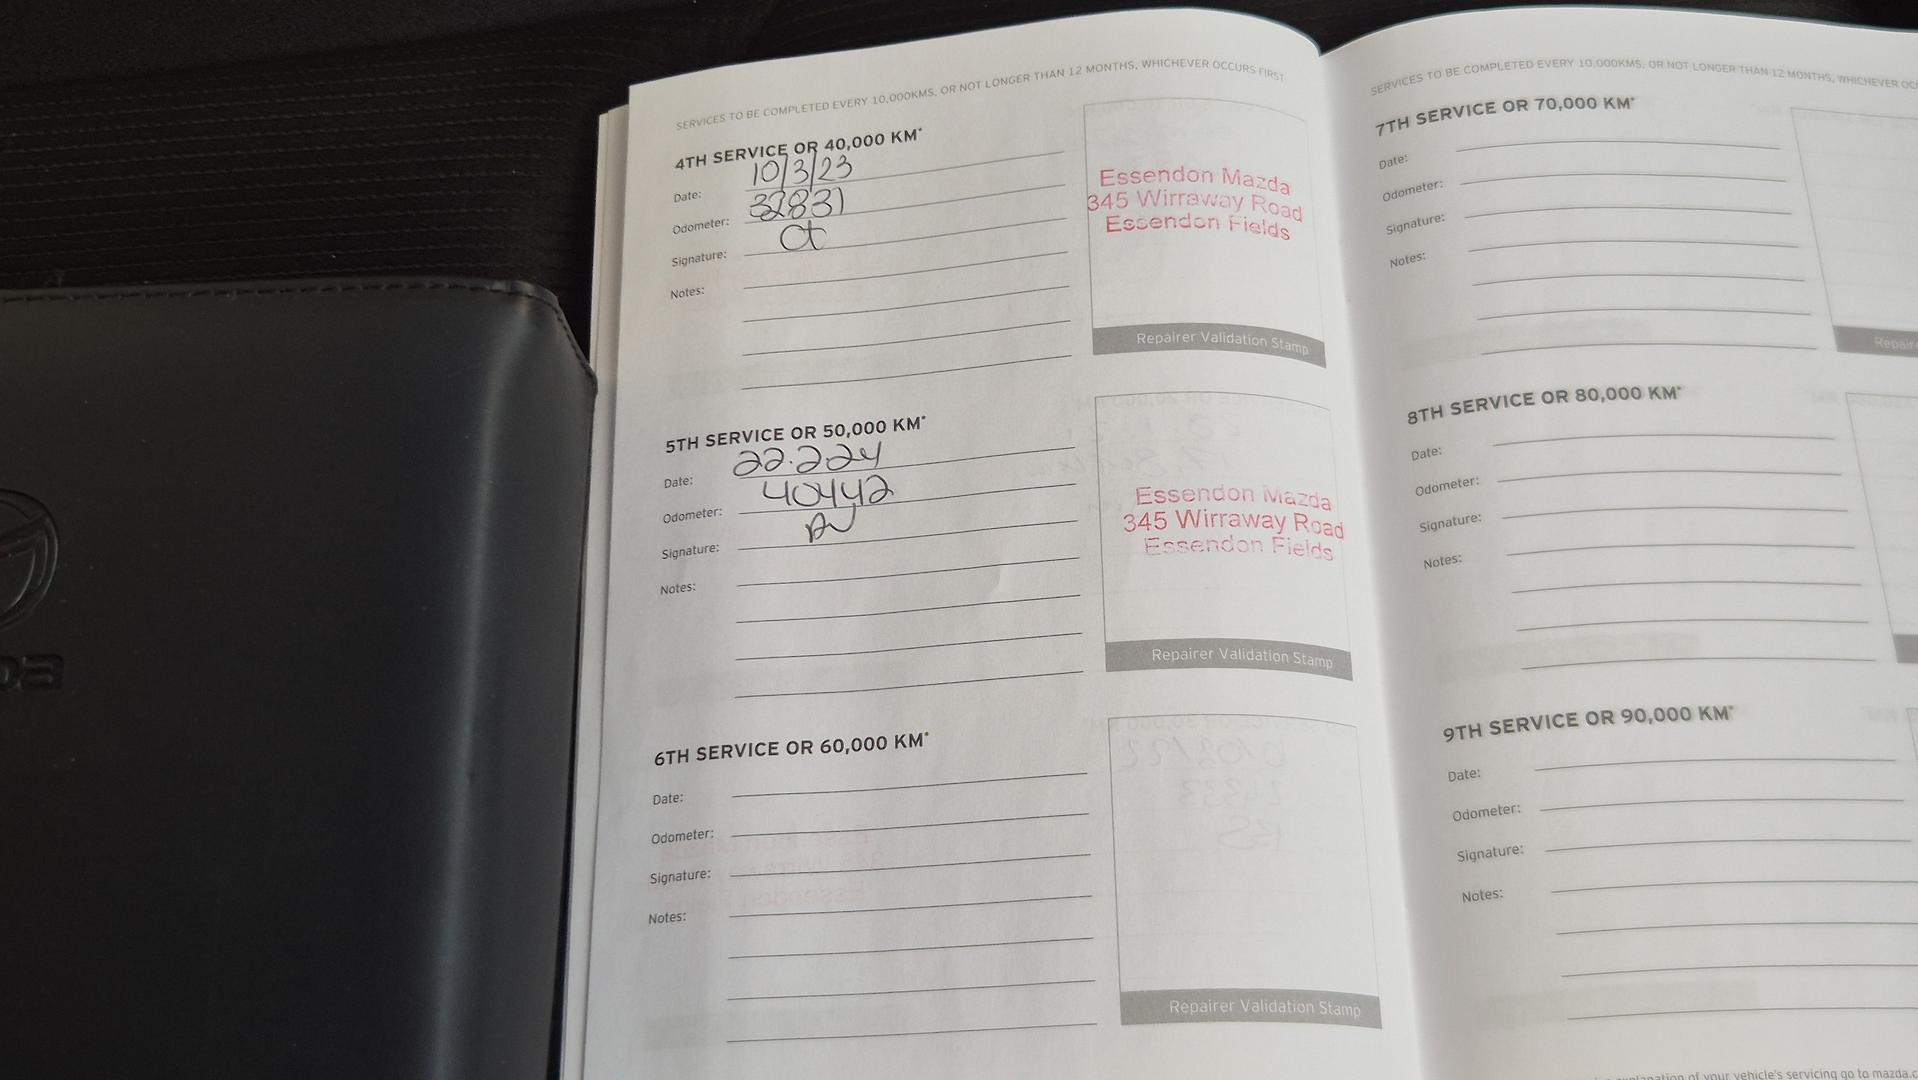 SERVICES TO BE COMPLETED EVERY 10,000KMS, OR NOT LONGER THAN 12 MONTHS, WHICHEVER OCCURS FIRST
4TH SERVICE OR 40,000 KM*
Date: 10/3/23
Odometer: 32831
Signature:
Notes:
Essendon Mazda
345 Wirraway Road
Essendon Fields
Repairer Validation Stamp
5TH SERVICE OR 50,000 KM*
Date: 22.2.24
Odometer: 40442
Signature:
Notes:
Essendon Mazda
345 Wirraway Road
Essendon Fields
Repairer Validation Stamp
6TH SERVICE OR 60,000 KM*
Date:
Odometer:
Signature:
Notes:
Repairer Validation Stamp
SERVICES TO BE COMPLETED EVERY 10,000KMS, OR NOT LONGER THAN 12 MONTHS, WHICHEVER OC
7TH SERVICE OR 70,000 KM*
Date:
Odometer:
Signature:
Notes:
Repair
8TH SERVICE OR 80,000 KM*
Date:
Odometer:
Signature:
Notes:
9TH SERVICE OR 90,000 KM*
Date:
Odometer:
Signature:
Notes:
explanation of your vehicle's servicing go to mazda.c